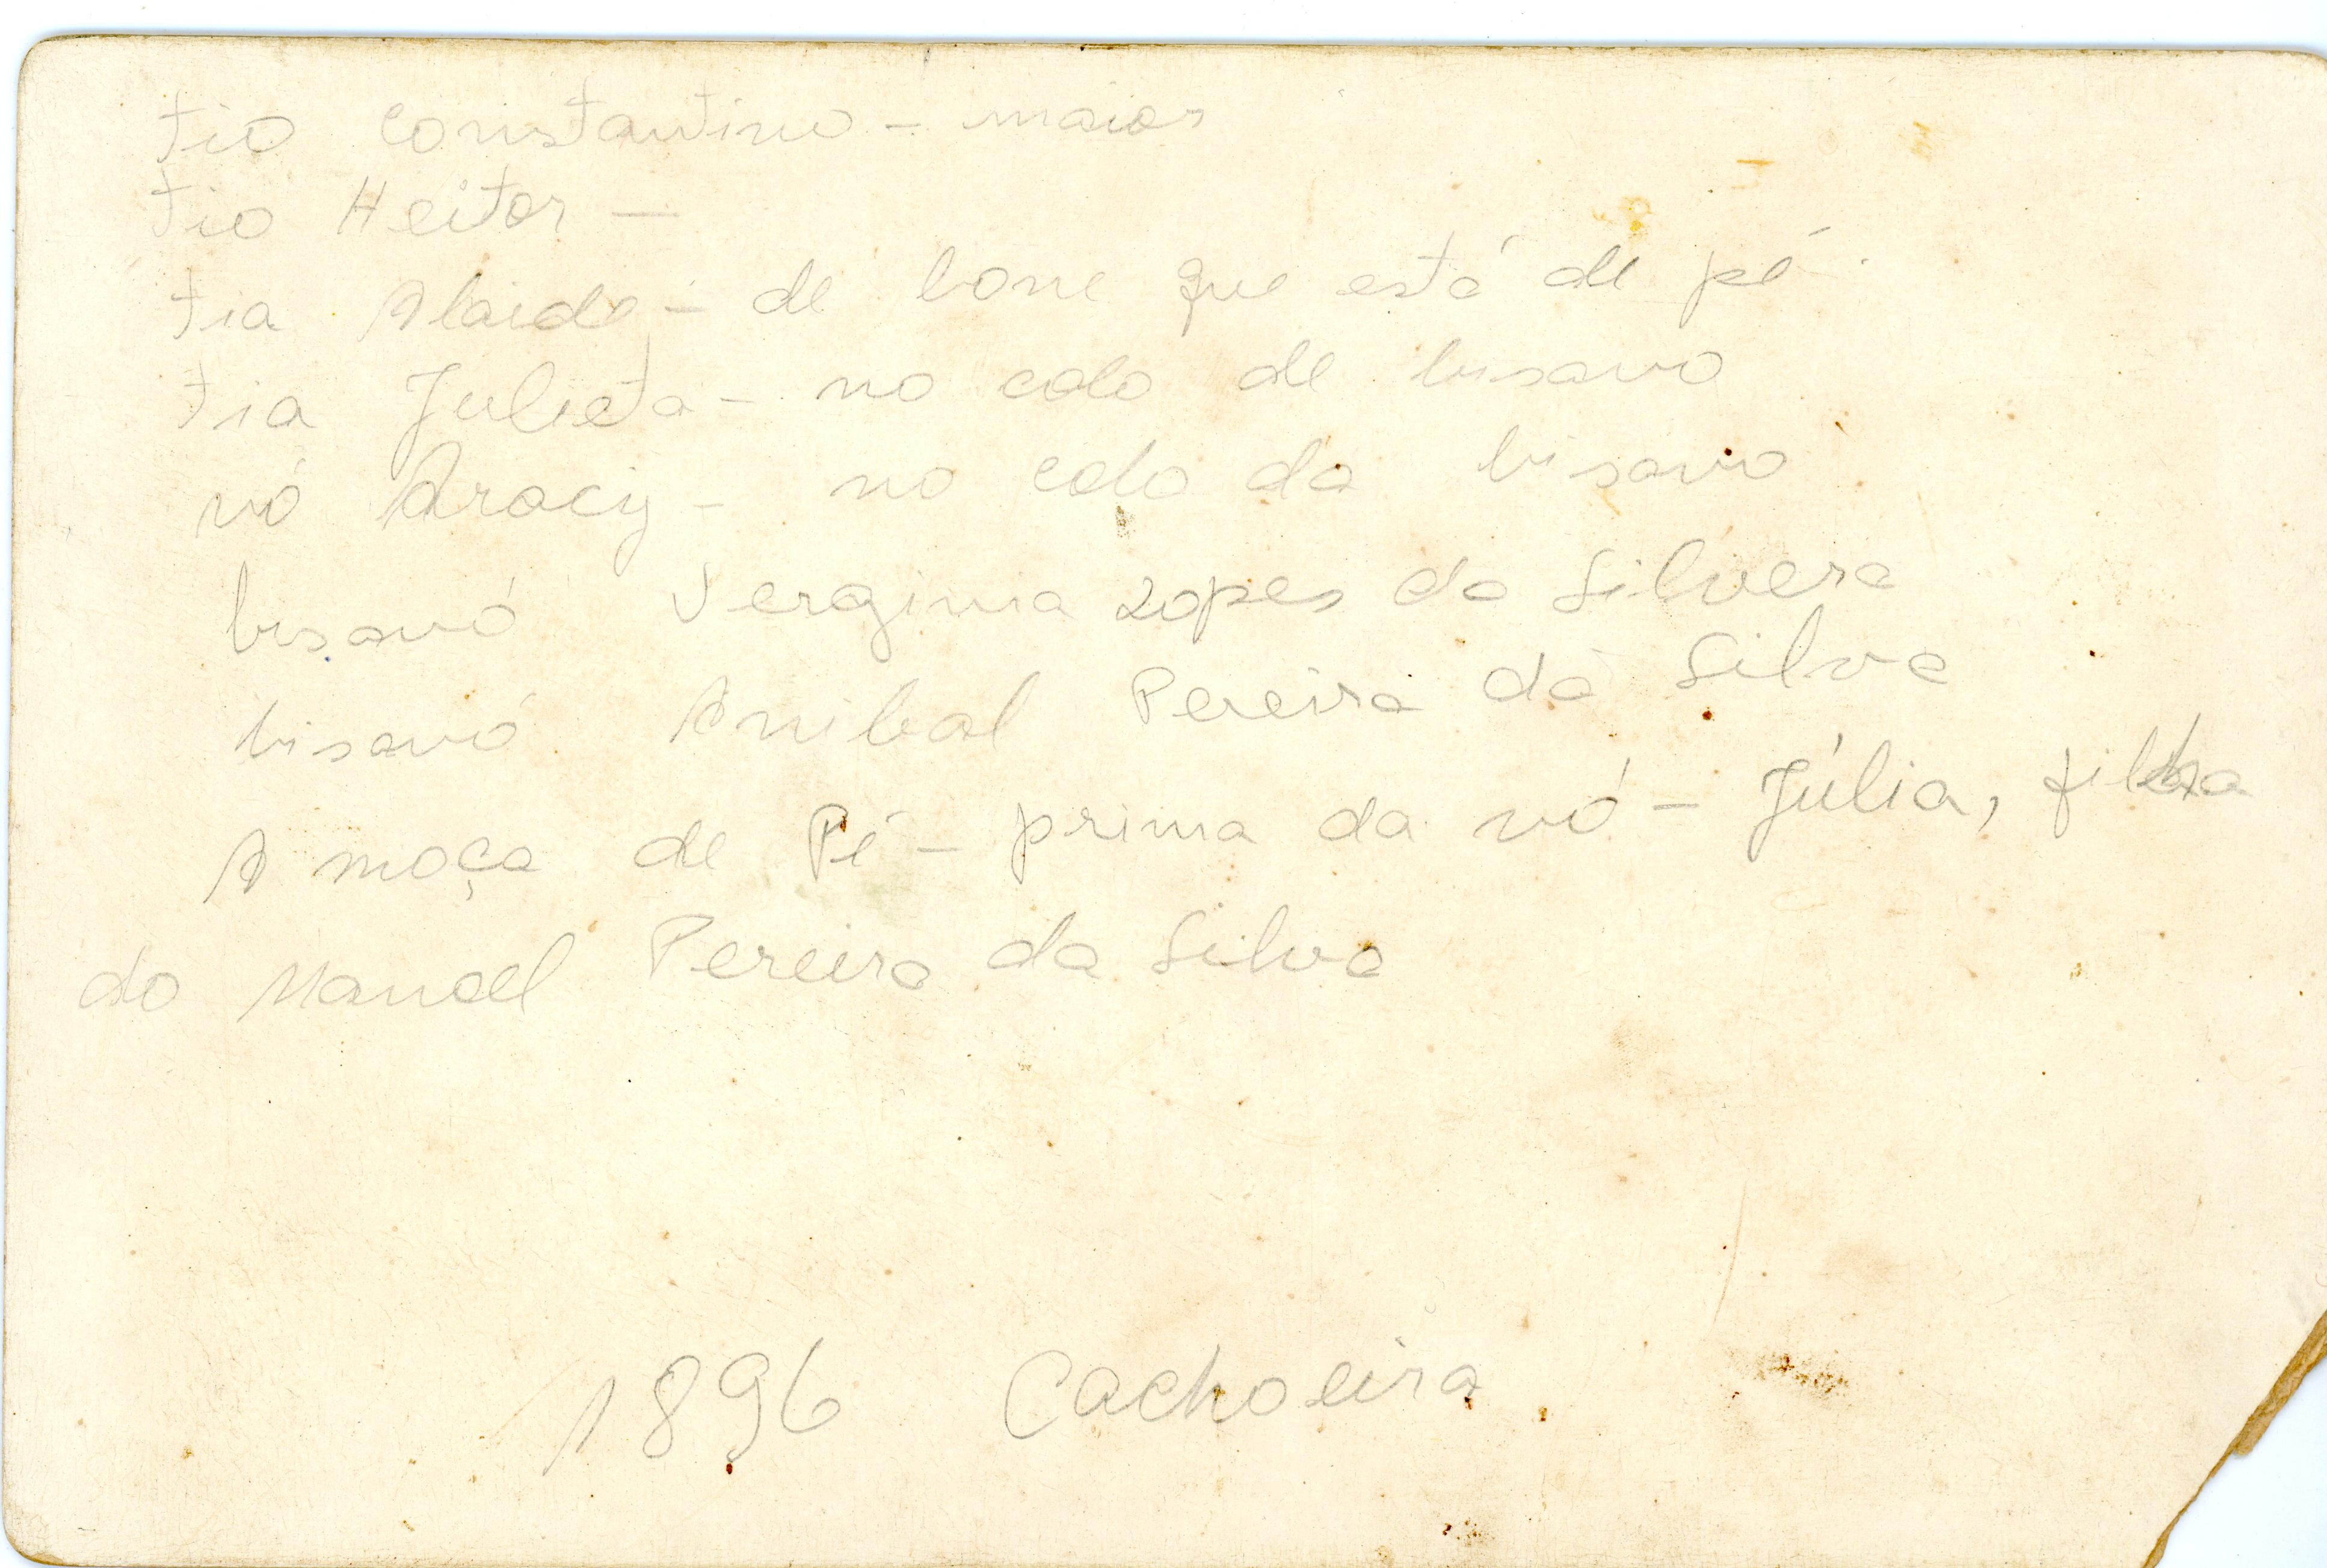 tio Constantino - maior
tio Heitor -
tia Alaide - de bone que está de pé.
tia Julieta - no colo de bisavo
vó Aracy - no colo da bisavo
bisavó Vergina Lopes da Silvera
bisavó Anibal Pereira da Silva
A moça de Pé - prima da vó - Júlia, filha
do Manoel Pereira da Silva
1896 Cachoeira